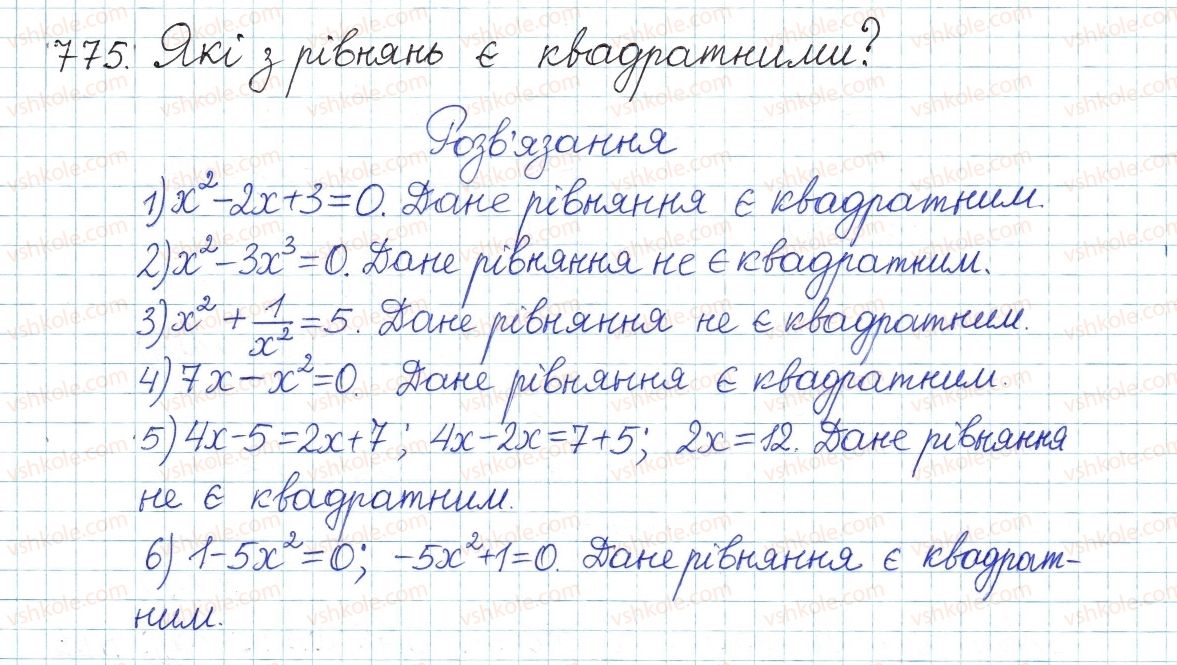 775. Які з рівнянь є квадратними?
Розв'язання
1) x² - 2x + 3 = 0. Дане рівняння є квадратним.
2) x² - 3x³ = 0. Дане рівняння не є квадратним.
3) x² + 1/x² = 5. Дане рівняння не є квадратним.
4) 7x - x² = 0. Дане рівняння є квадратним.
5) 4x - 5 = 2x + 7; 4x - 2x = 7 + 5; 2x = 12. Дане рівняння
не є квадратним.
6) 1 - 5x² = 0; -5x² + 1 = 0. Дане рівняння є квадрат-
ним.
vshkole.com